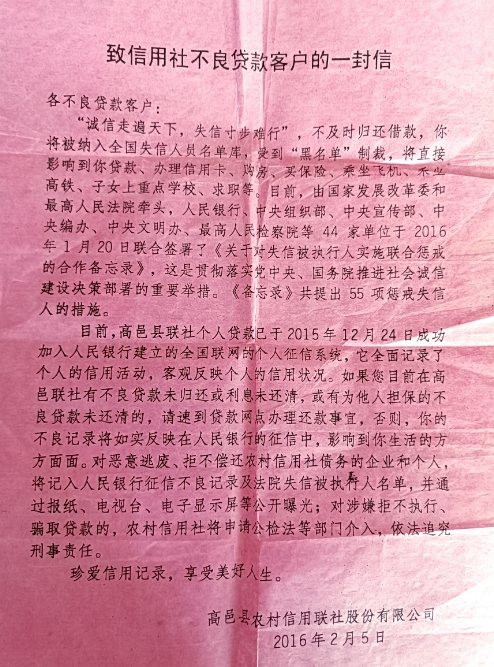 致信用社不良贷款客户的一封信
各不良贷款客户：
“诚信走遍天下，失信寸步难行”，不及时归还借款，你
将被纳入全国失信人员名单库，受到“黑名单”制裁，将直接
影响到你贷款、办理信用卡、购房、买保险、乘坐飞机、乘坐
高铁、子女上重点学校、求职等。目前，由国家发展改革委和
最高人民法院牵头，人民银行、中央组织部、中央宣传部、中
央编办、中央文明办、最高人民检察院等 44 家单位于 2016
年 1 月 20 日联合签署了《关于对失信被执行人实施联合惩戒
的合作备忘录》，这是贯彻落实党中央、国务院推进社会诚信
建设决策部署的重要举措。《备忘录》共提出 55 项惩戒失信
人的措施。
目前，高邑县联社个人贷款已于 2015 年 12 月 24 日成功
加入人民银行建立的全国联网的个人征信系统，它全面记录了
个人的信用活动，客观反映个人的信用状况。如果您目前在高
邑联社有不良贷款未归还或利息未还清，或有为他人担保的不
良贷款未还清的，请速到贷款网点办理还款事宜，否则，你的
不良记录将如实反映在人民银行的征信中，影响到你生活的方
方面面。对恶意逃废、拒不偿还农村信用社债务的企业和个人，
将记入人民银行征信不良记录及法院失信被执行人名单，并通
过报纸、电视台、电子显示屏等公开曝光；对涉嫌拒不执行、
骗取贷款的，农村信用社将申请公检法等部门介入，依法追究
刑事责任。
珍爱信用记录，享受美好人生。
高邑县农村信用联社股份有限公司
2016 年 2 月 5 日